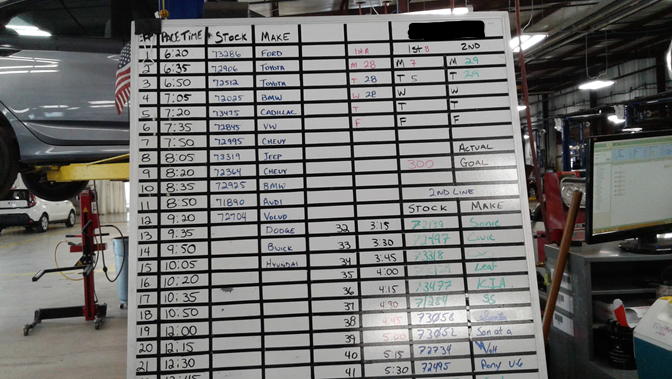 C# PACE TIME STOCK MAKE 1st 8 2ND
1 6:20 73286 FORD
2 6:35 72906 TOYOTA M 28 M 7 M 29
3 6:50 72512 TOYOTA T 28 T 5 T 29
4 7:05 72025 BMW W 28 W W
5 7:20 73475 CADILLAC T T T
6 7:35 72845 VW F F F
7 7:50 72995 CHEVY ACTUAL
8 8:05 73319 JEEP 300 GOAL
9 8:20 72364 CHEVY
10 8:35 72925 BMW 2ND LINE
11 8:50 71890 AUDI STOCK MAKE
12 9:20 72704 VOLVO 32 3:15 Sonic
13 9:35 DODGE 33 3:30 Civic
14 9:50 BUICK 34 3:45
15 10:05 HYUNDAI 35 4:00 Leaf
16 10:20 36 4:15 73477 KIA
17 10:35 37 4:30 71284 SS
18 10:50 38 4:45 73056
19 12:00 39 5:00 73052 Sonata
20 12:15 40 5:15 72734 Volt
21 12:30 41 5:30 72495 Pony V-6